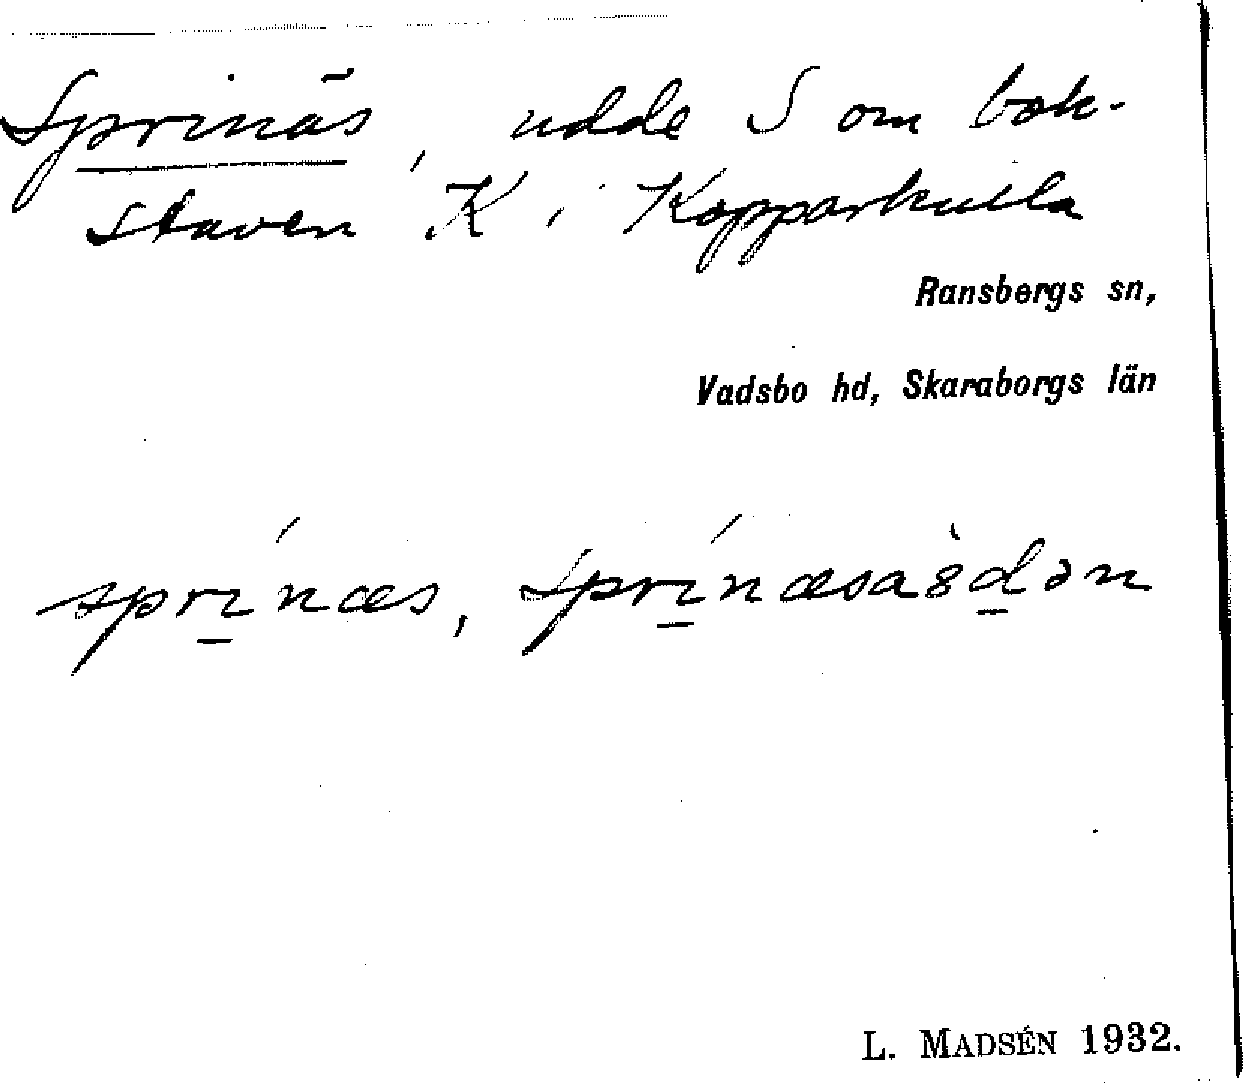 Sprinäs, udde S om bok-
staven K i Kopparkulla
Ransbergs sn,
Vadsbo hd, Skaraborgs län
sprínæs, sprínæsàsdən
L. MADSÉN 1932.